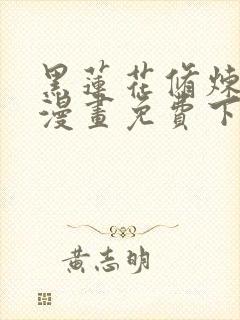 黑蓮花脩煉
漫畫免費下
黃志明